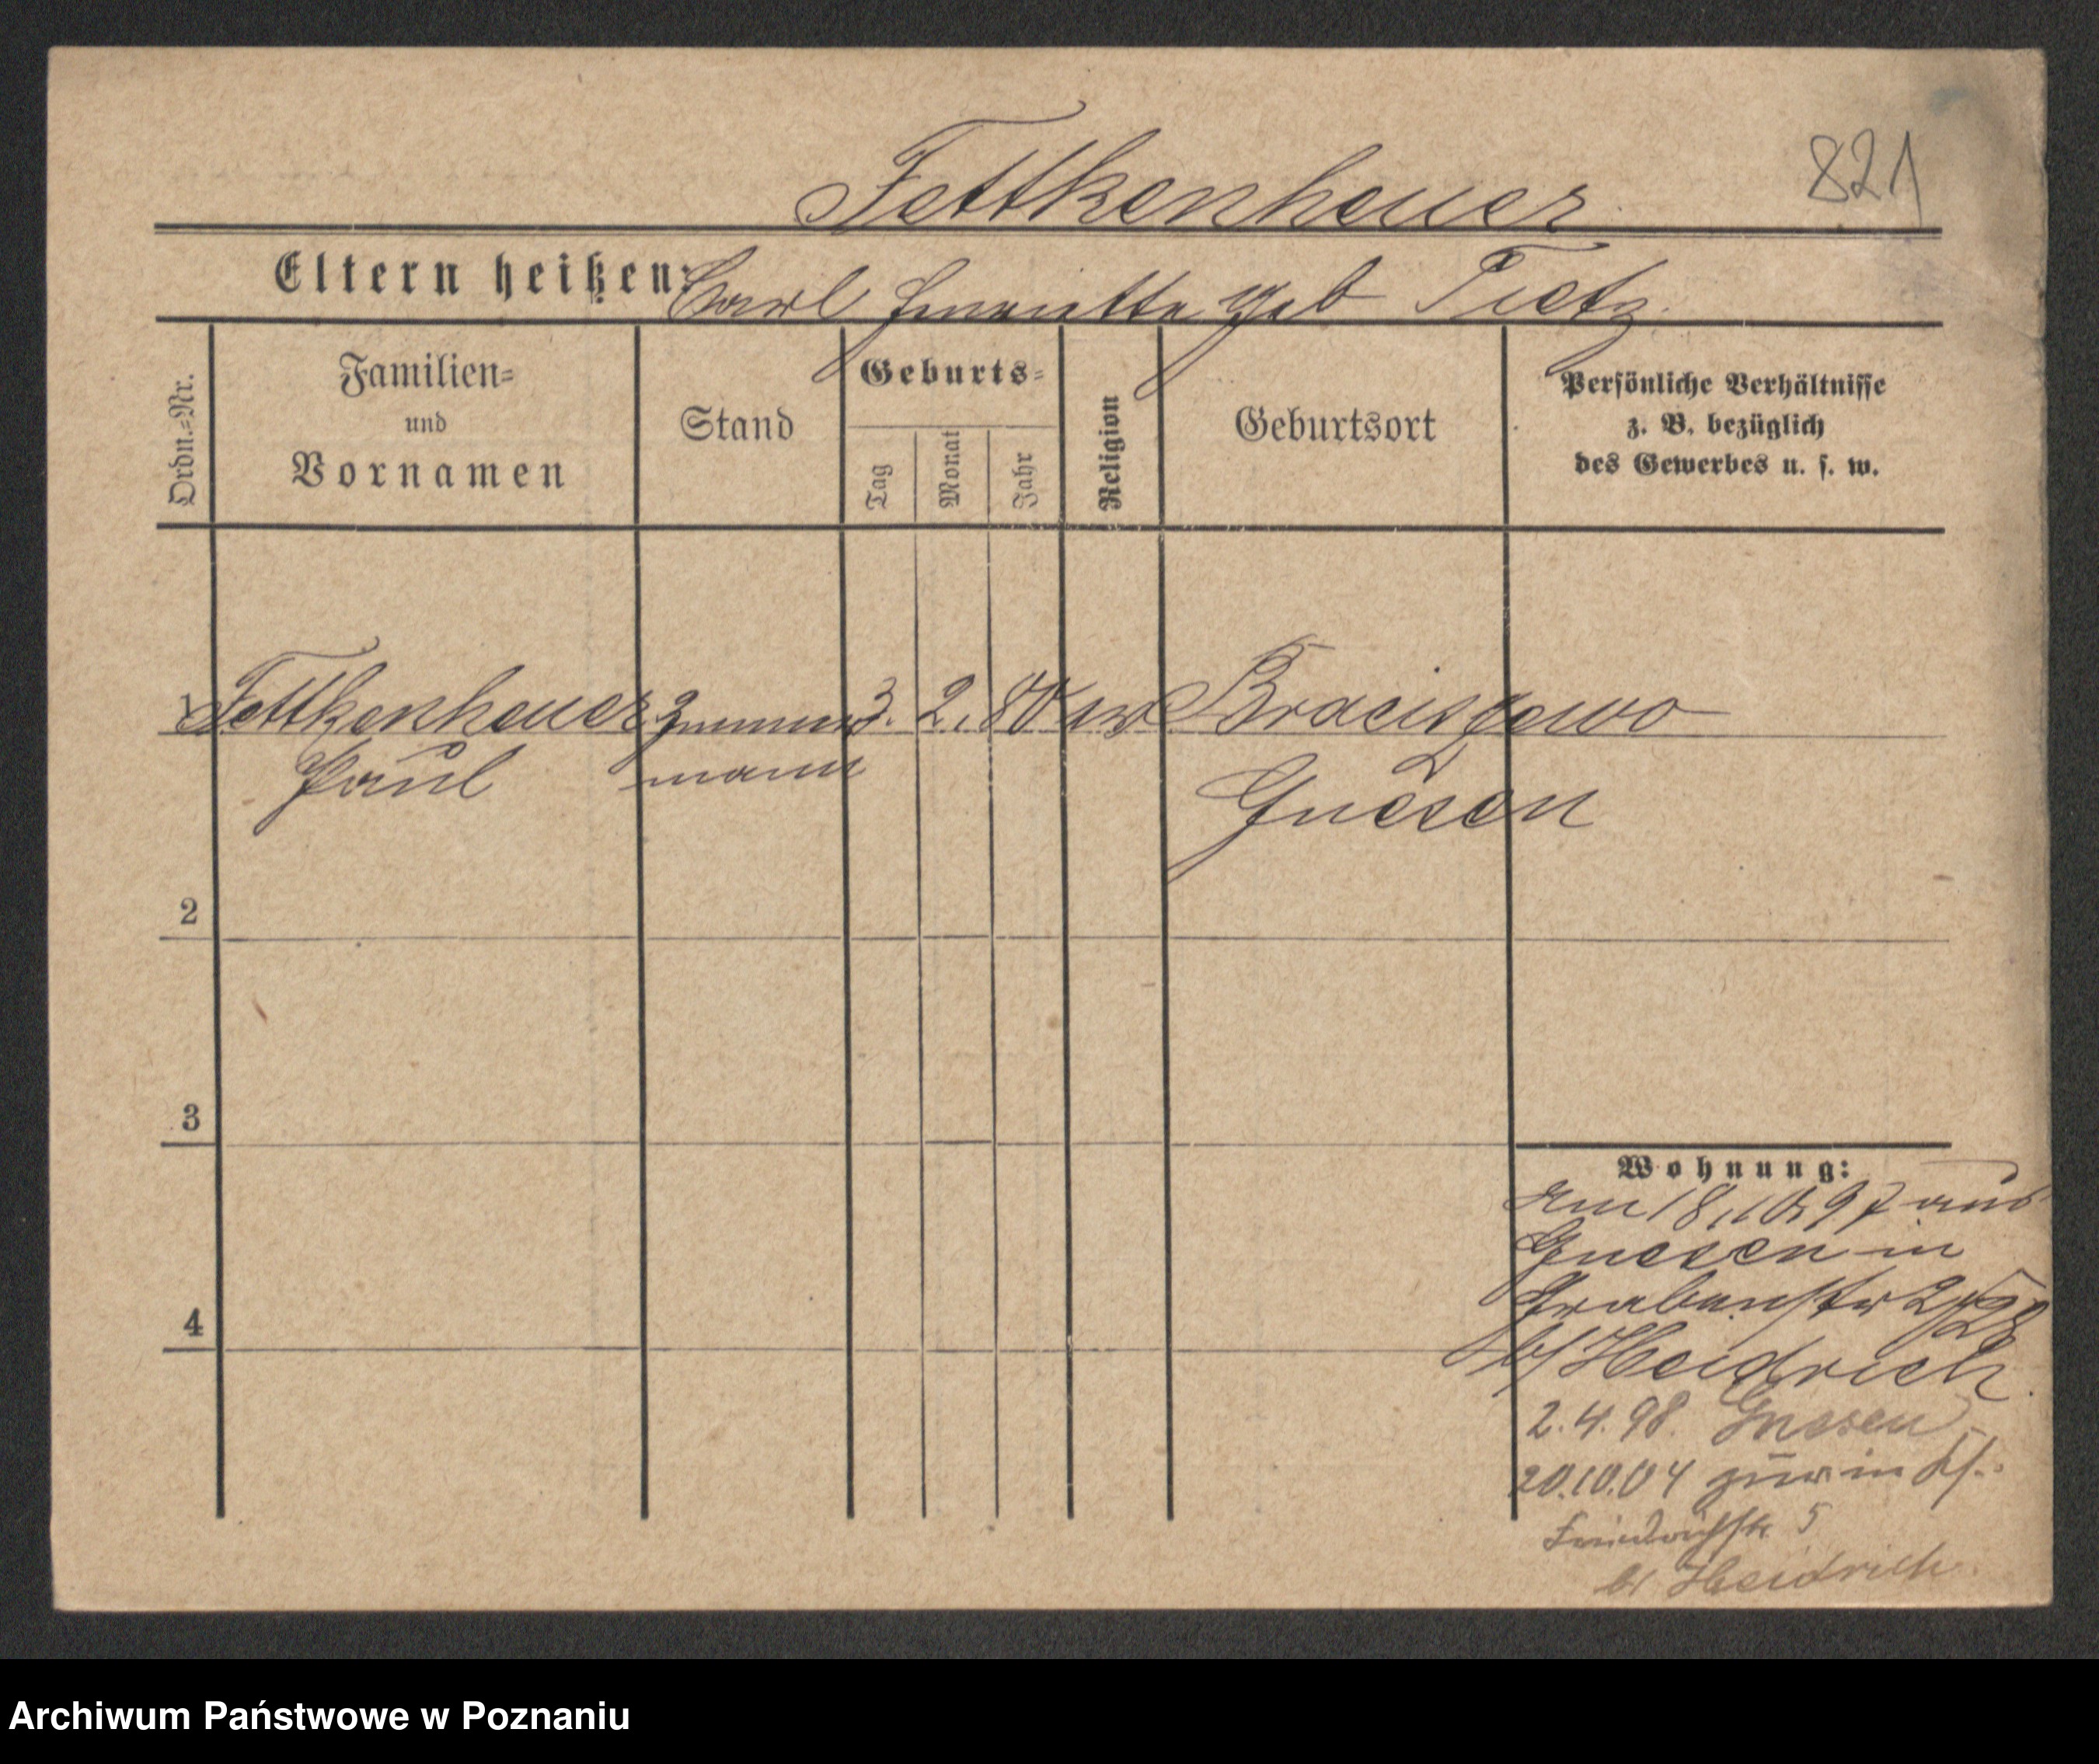 Fettkenheuer
821
Eltern heißen: Carl Henriette geb Tietz.
Ordn.=Nr.
Familien=
und
Vornamen
Stand
Geburts=
Tag
Monat
Jahr
Religion
Geburtsort
Persönliche Verhältnisse
z. B. bezüglich
des Gewerbes u. s. w.
1 Fettkenheuer Zimmer 3. 2. 80 ev
Paul mann
Gnesen
2
3
4
Wohnung:
Am 18.10.97 aus
Gnesen in
Grabenstr
b/ Heidrich.
2.4.98. Gnesen
20.10.04 zur in
Friedrichstr 5
b/ Heidrich.
Archiwum Państwowe w Poznaniu